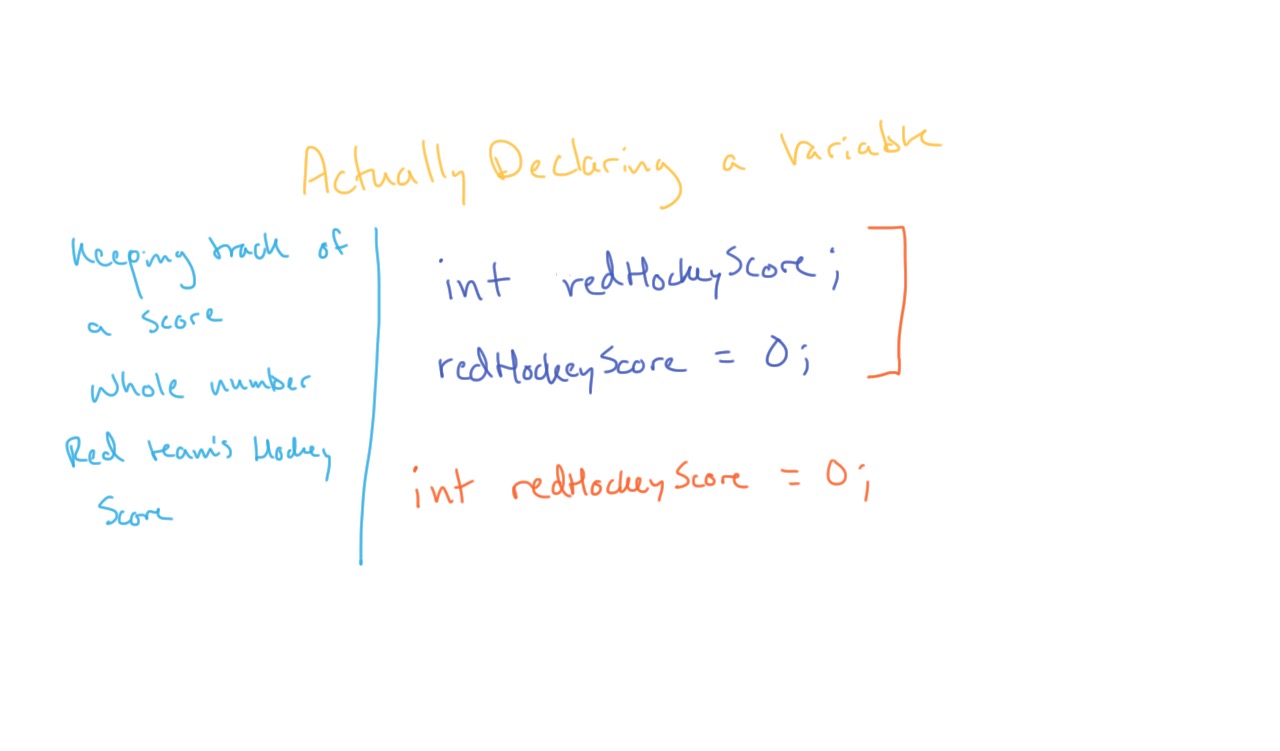 Actually Declaring a Variable
Keeping track of
a score
Whole number
Red team's Hockey
Score
int redHockeyScore;
redHockeyScore = 0;
int redHockeyScore = 0;